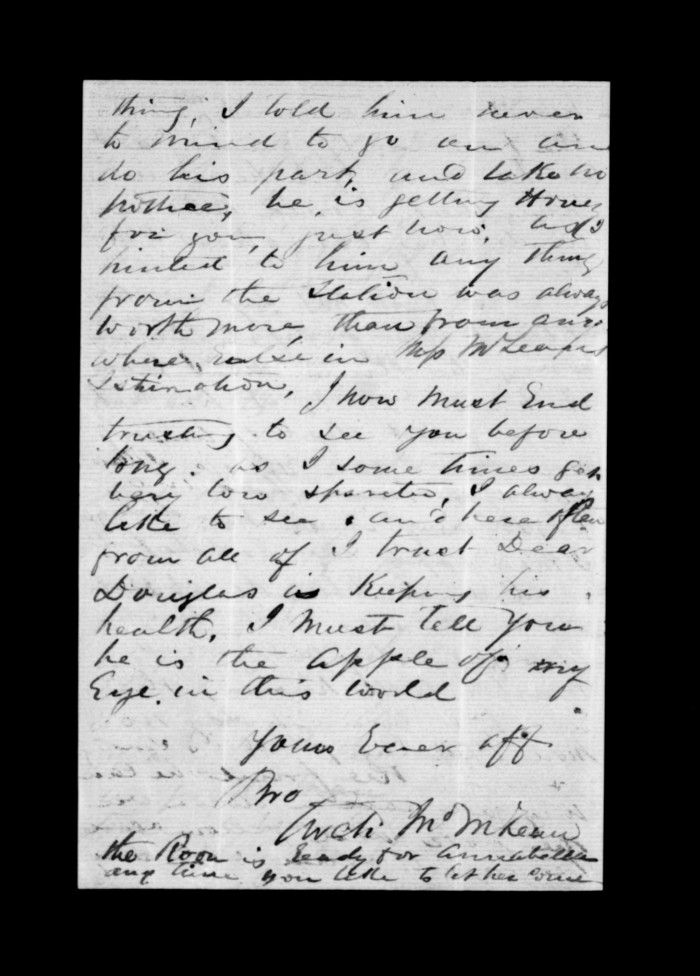 thing, I told him never
to mind to go on an
do his part, and take no
notice, he is getting Honey
for you, just now, and I
hinted to him any thing
from the Station was always
worth more, than from any
where else in Mrs McLeans
Estimation, I now must End
trusting to see you before
long. as I some times get
very low spirites, I always
like to see and here often
from all of I trust Dear
Douglas is Keeping his
health, I Must tell You
he is the apple of my
Eye in this world
Yours Ever aff
Bro
Arch McLean
the Room is Ready for Annabella
any time you like to let her come